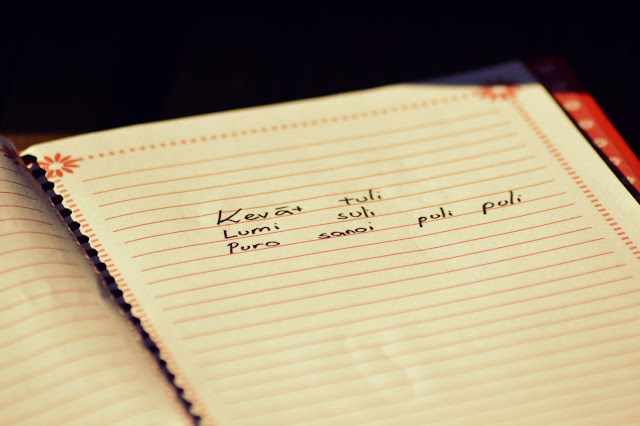 Kevät tuli
Lumi suli
Puro sanoi puli puli